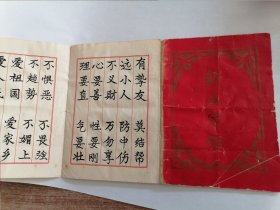 有挚友 莫结帮
远小人 防中伤
不义财 万勿享
心要善 性要刚
理要直 气要壮
不惧恶 不畏强
不趋势 不媚上
爱祖国 爱家乡
爱人